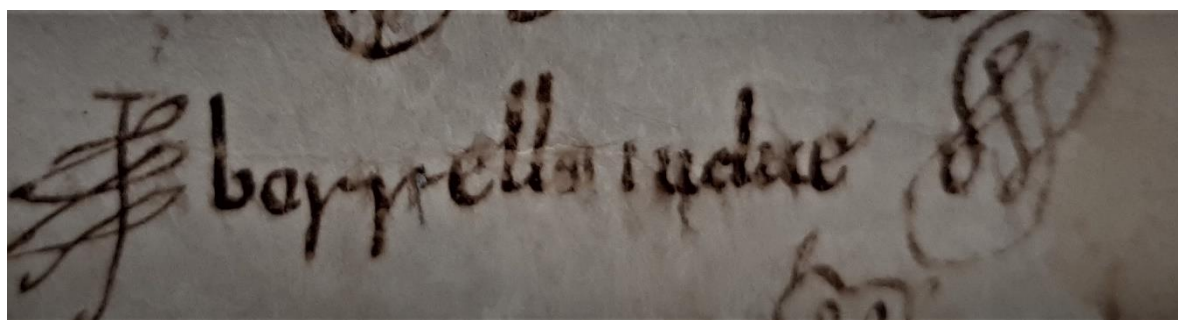 borrellus iudice